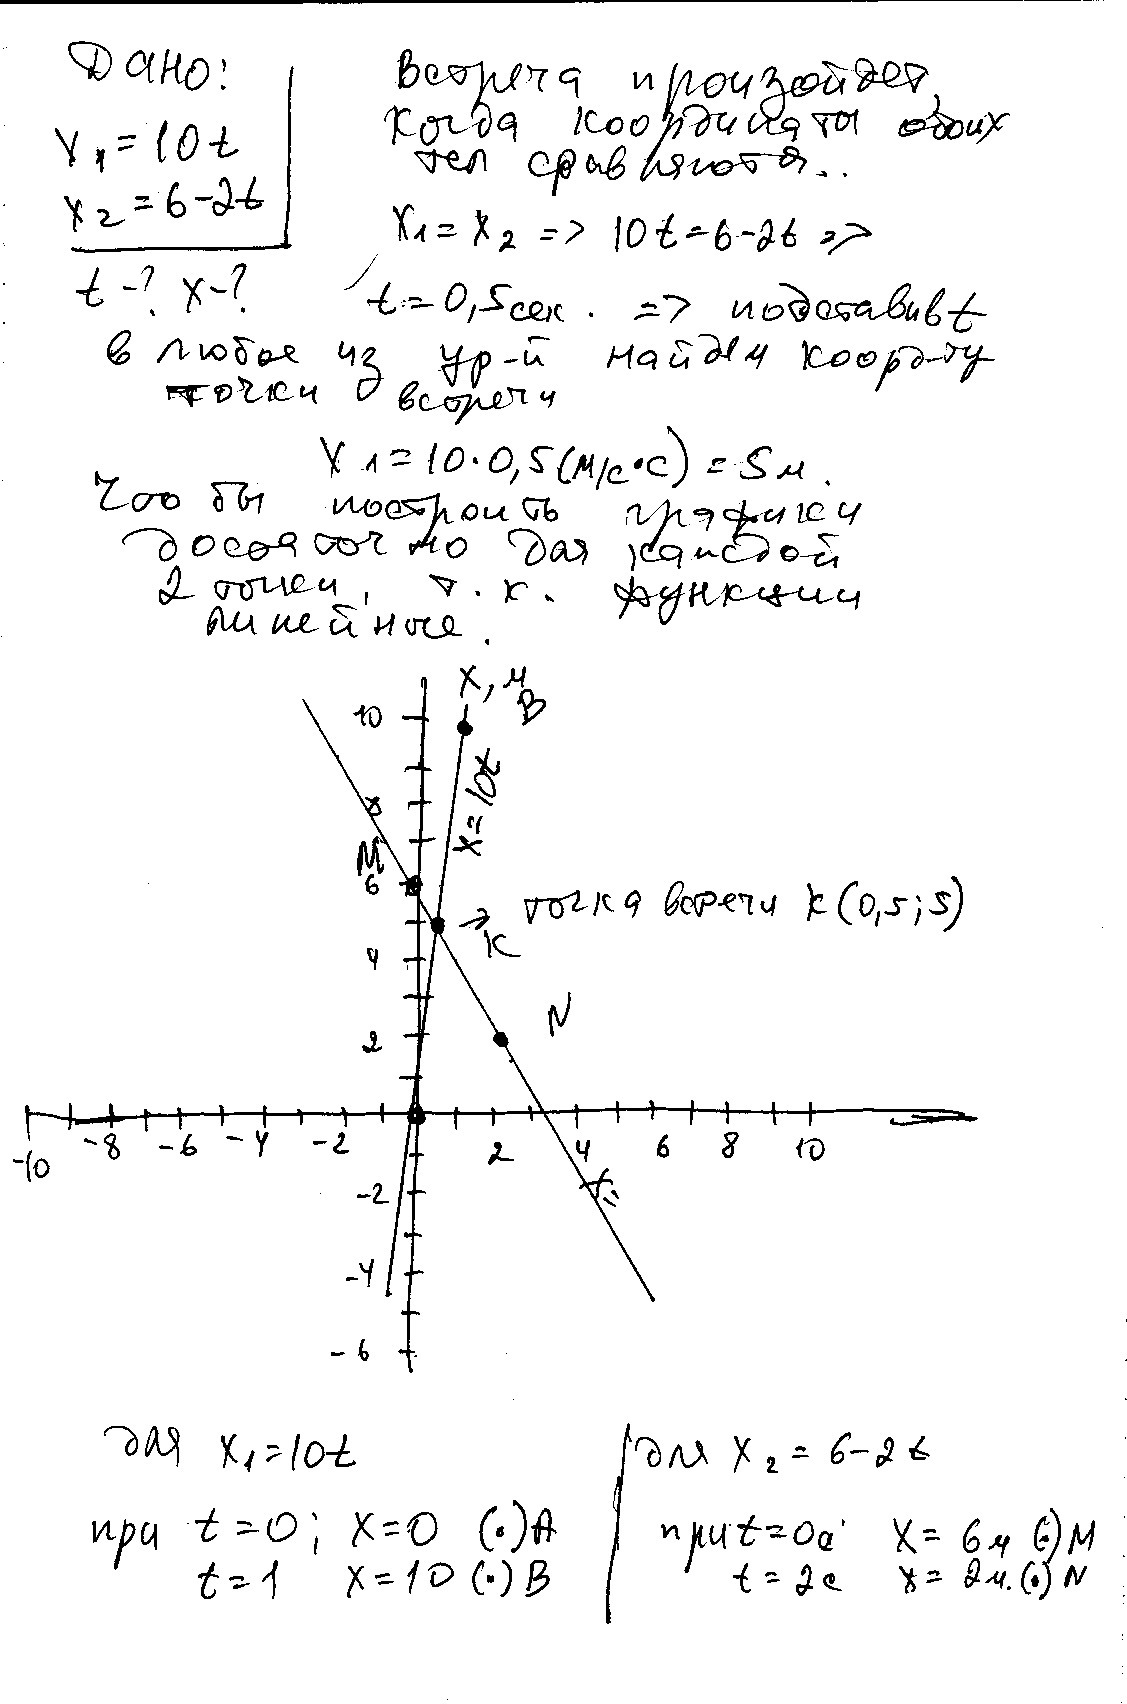 Дано:
x₁=10t
x₂=6-2t
t-? x-?
Встреча произойдет,
когда координаты обоих
тел сравняются..
x₁=x₂ => 10t=6-2t =>
t=0,5сек. => подставив t
в любое из ур-й найдем коорд-ту
точки встречи
x₁=10·0,5(м/с·с)=5м.
Что бы построить графики
достаточно для каждой
2 точки, т.к. функции
линейные.
x, м
B
10
x=10t
8
M
6
K
точка встречи K(0,5;5)
4
N
2
-10 -8 -6 -4 -2 2 4 6 8 10
x=
-2
-4
-6
для x₁=10t
при t=0; x=0 (·)A
t=1 x=10 (·)B
для x₂=6-2t
при t=0c x=6м (·)M
t=2c x=2м. (·)N